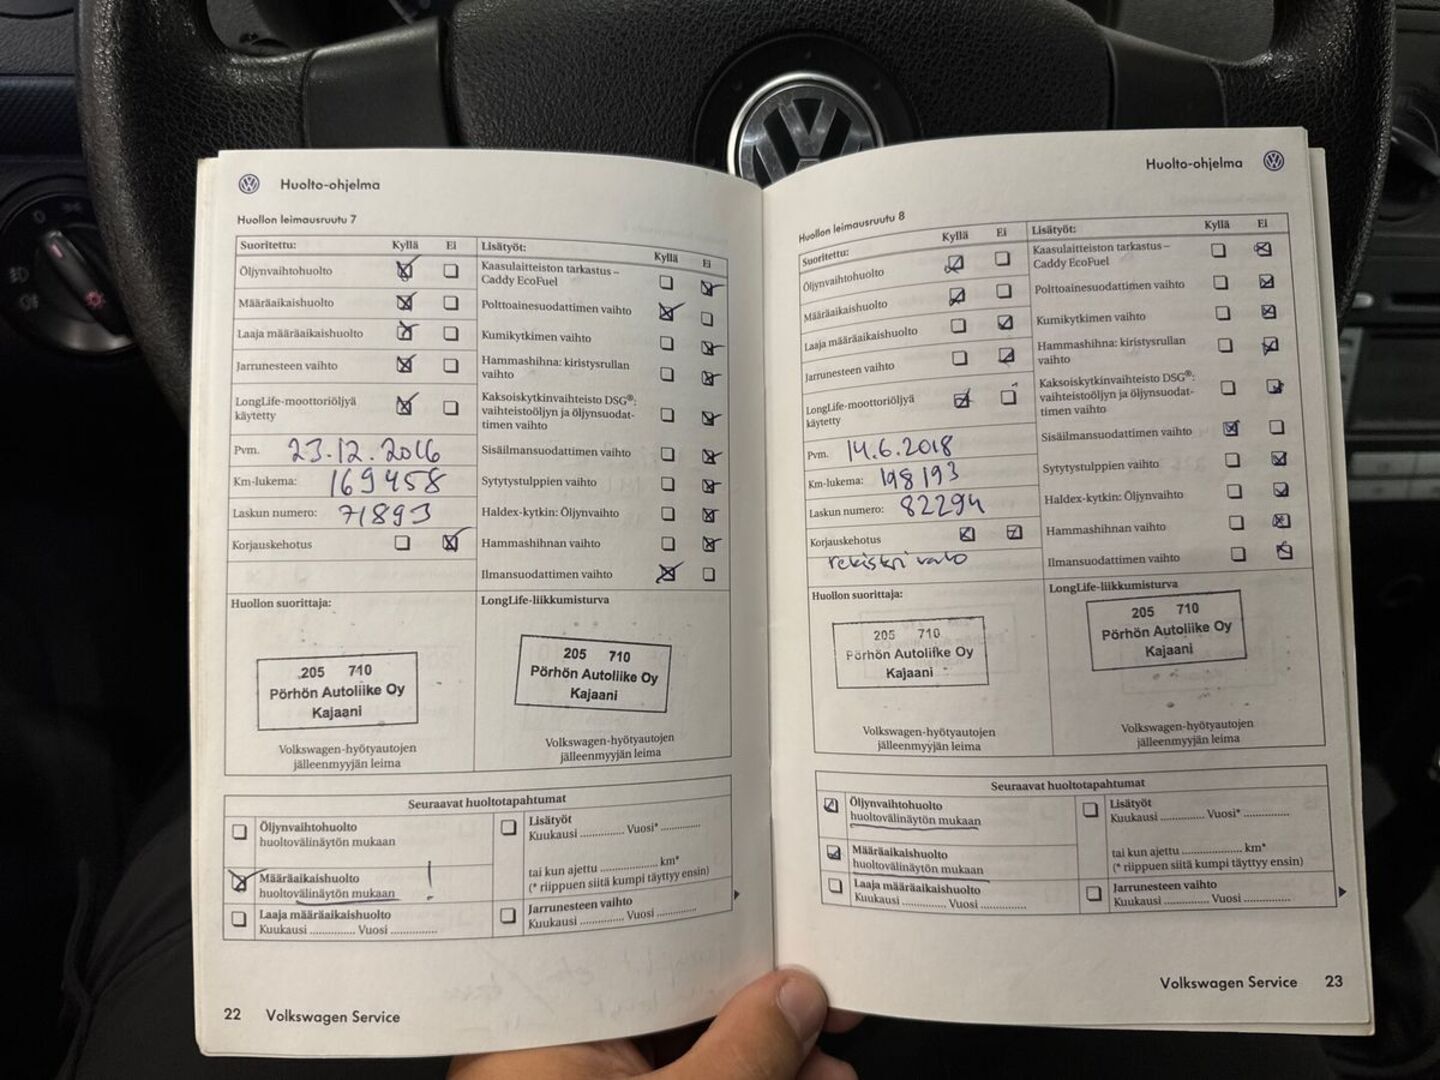 Huolto-ohjelma
Huollon leimausruutu 7
Suoritettu: Kyllä Ei
Öljynvaihtohuolto
Määräaikaishuolto
Laaja määräaikaishuolto
Jarrunesteen vaihto
LongLife-moottoriöljyä
käytetty
Pvm. 23.12.2016
Km-lukema: 169458
Laskun numero: 71893
Korjauskehotus
Lisätyöt: Kyllä Ei
Kaasulaitteiston tarkastus –
Caddy EcoFuel
Polttoainesuodattimen vaihto
Kumikytkimen vaihto
Hammashihna: kiristysrullan
vaihto
Kaksoiskytkinvaihteisto DSG®:
vaihteistoöljyn ja öljynsuodat-
timen vaihto
Sisäilmansuodattimen vaihto
Sytytystulppien vaihto
Haldex-kytkin: Öljynvaihto
Hammashihnan vaihto
Ilmansuodattimen vaihto
Huollon suorittaja:
205 710
Pörhön Autoliike Oy
Kajaani
Volkswagen-hyötyautojen
jälleenmyyjän leima
LongLife-liikkumisturva
205 710
Pörhön Autoliike Oy
Kajaani
Volkswagen-hyötyautojen
jälleenmyyjän leima
Seuraavat huoltotapahtumat
Öljynvaihtohuolto
huoltovälinäytön mukaan
Määräaikaishuolto
huoltovälinäytön mukaan !
Laaja määräaikaishuolto
Kuukausi ............... Vuosi ...............
Lisätyöt
Kuukausi .............. Vuosi* .............
tai kun ajettu .................... km*
(* riippuen siitä kumpi täyttyy ensin)
Jarrunesteen vaihto
Kuukausi .............. Vuosi .............
22 Volkswagen Service
Huolto-ohjelma
Huollon leimausruutu 8
Suoritettu: Kyllä Ei
Öljynvaihtohuolto
Määräaikaishuolto
Laaja määräaikaishuolto
Jarrunesteen vaihto
LongLife-moottoriöljyä
käytetty
Pvm. 14.6.2018
Km-lukema: 198193
Laskun numero: 82294
Korjauskehotus
rekisteri valo
Lisätyöt: Kyllä Ei
Kaasulaitteiston tarkastus –
Caddy EcoFuel
Polttoainesuodattimen vaihto
Kumikytkimen vaihto
Hammashihna: kiristysrullan
vaihto
Kaksoiskytkinvaihteisto DSG®:
vaihteistoöljyn ja öljynsuodat-
timen vaihto
Sisäilmansuodattimen vaihto
Sytytystulppien vaihto
Haldex-kytkin: Öljynvaihto
Hammashihnan vaihto
Ilmansuodattimen vaihto
Huollon suorittaja:
205 710
Pörhön Autoliike Oy
Kajaani
Volkswagen-hyötyautojen
jälleenmyyjän leima
LongLife-liikkumisturva
205 710
Pörhön Autoliike Oy
Kajaani
Volkswagen-hyötyautojen
jälleenmyyjän leima
Seuraavat huoltotapahtumat
Öljynvaihtohuolto
huoltovälinäytön mukaan
Määräaikaishuolto
huoltovälinäytön mukaan
Laaja määräaikaishuolto
Kuukausi .............. Vuosi ..............
Lisätyöt
Kuukausi .............. Vuosi* ..............
tai kun ajettu .................... km*
(* riippuen siitä kumpi täyttyy ensin)
Jarrunesteen vaihto
Kuukausi .............. Vuosi ..............
Volkswagen Service 23